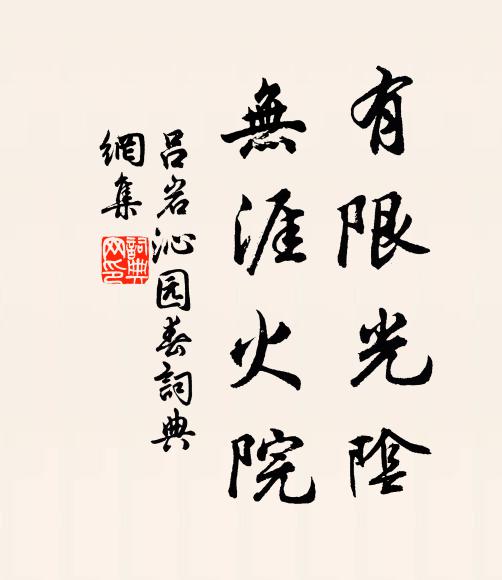 有限光陰
無涯火院
吕岩沁园春詞典
網集
詞典網印